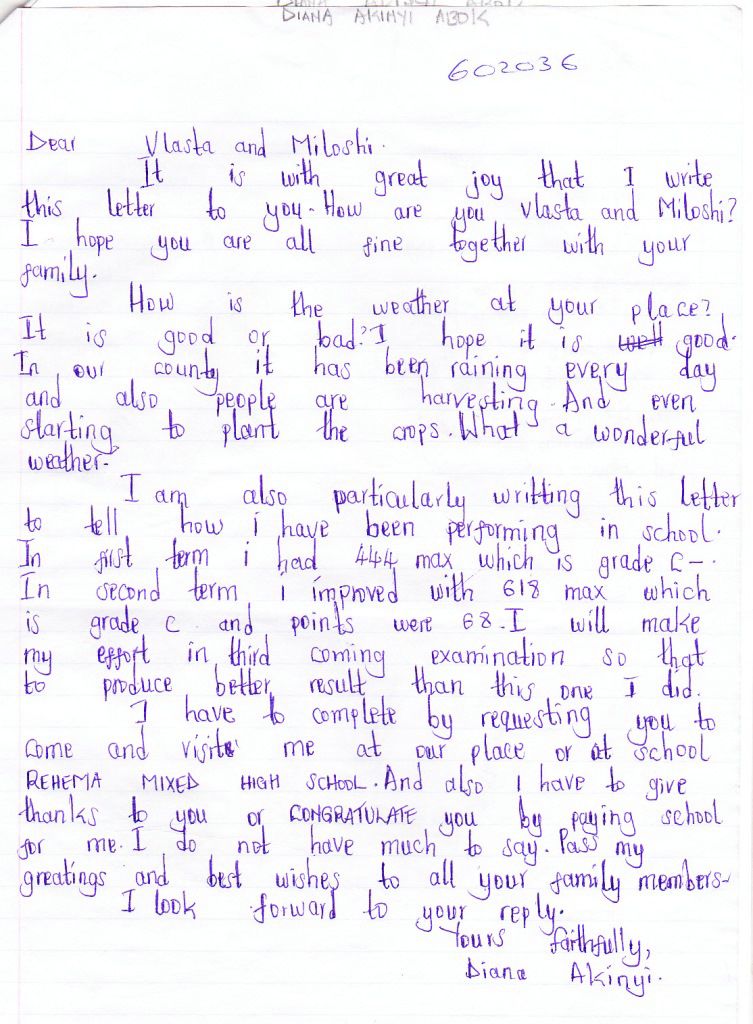 DIANA AKINYI ABOK
602036
Dear Vlasta and Miloshi.
It is with great joy that I write
this letter to you. How are you Vlasta and Miloshi?
I hope you are all fine together with your
family.
How is the weather at your place?
It is good or bad? I hope it is well good.
In our county it has been raining every day
and also people are harvesting. And even
starting to plant the crops. What a wonderful
weather.
I am also particularly writting this letter
to tell how i have been performing in school.
In first term i had 444 max which is grade C-.
In second term i improved with 618 max which
is grade C. and points were 68. I will make
my effort in third coming examination so that
to produce better result than this one I did.
I have to complete by requesting you to
come and visit me at our place or at school
REHEMA MIXED HIGH SCHOOL. And also I have to give
thanks to you or CONGRATULATE you by paying school
for me. I do not have much to say. Pass my
greatings and best wishes to all your family members.
I look forward to your reply.
Yours faithfully,
Diana Akinyi.